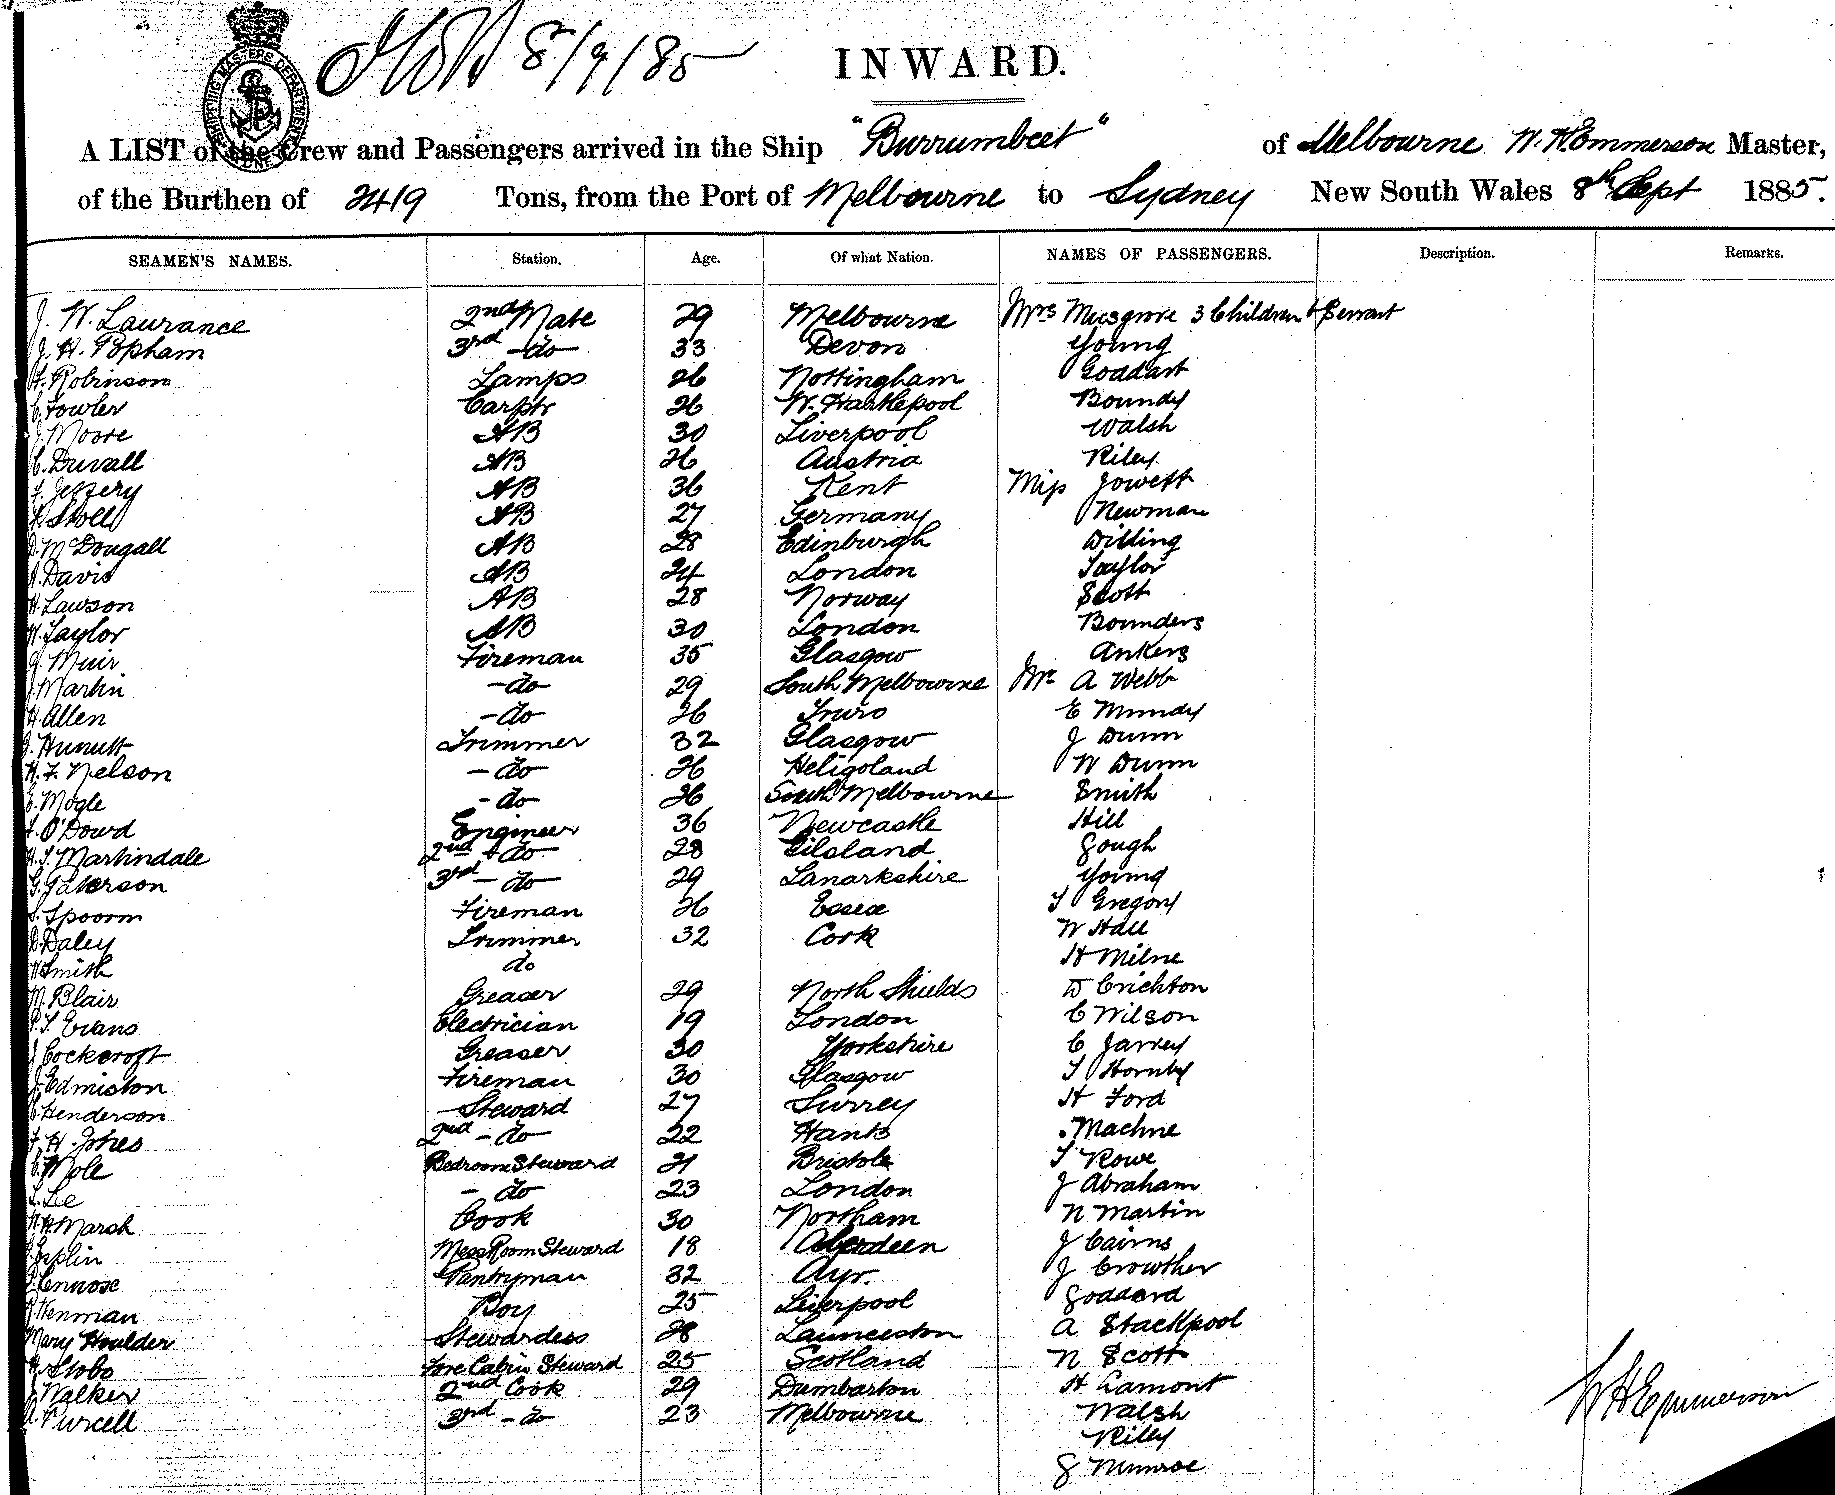 8/9/85
INWARD.
A LIST of the Crew and Passengers arrived in the Ship "Burrumbeet" of Melbourne W. H. Emmerson Master,
of the Burthen of 2419 Tons, from the Port of Melbourne to Sydney New South Wales 8th Sept 1885.
SEAMEN'S NAMES. Station. Age. Of what Nation. NAMES OF PASSENGERS. Description. Remarks.
J. W. Laurance 2nd Mate 29 Melbourne Mrs Musgrove 3 Children & Servant
J. H. Popham 3rd - do 33 Devon Young
Robinson Lamps 26 Nottingham Goddart
C. Fowler Carptr 26 W. Hartlepool Boundy
J. Moore AB 30 Liverpool Walsh
C. Duvall AB 26 Austria Riley
F. Jeffery AB 36 Kent Miss Jowett
AB 27 Germany Newman
D. McDougall AB 28 Edinburgh Dilling
Davis AB 24 London Taylor
H. Lawson AB 28 Norway Scott
W. Taylor AB 30 London Bounders
J. Muir Fireman 35 Glasgow Ankers
J. Martin - do 29 South Melbourne Mr A Webb
H. Allen - do 26 Truro E Mundy
Trimmer 32 Glasgow J Dunn
H. F. Nelson - do 26 Heligoland W Dunn
Mogle - do 26 South Melbourne Smith
O'Dowd Engineer 36 Newcastle Hill
Martindale 2nd do 28 Gilsland Gough
G. Paterson 3rd - do 29 Lanarkshire Young
Spoorm Fireman 26 Essex T Gregory
D. Daley Trimmer 32 Cork W Hall
Smith do H Milne
M. Blair Greaser 29 North Shields D Crichton
Evans Electrician 19 London C Wilson
J Cockcroft Greaser 30 Yorkshire C Jarvey
J. Edmiston Fireman 30 Glasgow T Hornby
Henderson Steward 27 Surrey H Ford
H. Jones 2nd - do 22 Hants Machne
C. Mole Bedroom Steward 21 Bristole T Rowe
Lie - do 23 London J Abraham
Marsh Cook 30 Northam N Martin
Joplin Mess Room Steward 18 Aberdeen J Cairns
Lennose Pantryman 32 Ayr. J Crowther
Henman Boy 25 Liverpool Goddard
Mary Houlder Stewardess 28 Launceston A Stackpool
Stobo Fore Cabin Steward 25 Scotland N Scott
J Walker 2nd Cook 29 Dumbarton H Lamont
Purcell 3rd - do 23 Melbourne Walsh
Riley
G Munroe
W H Emmerson